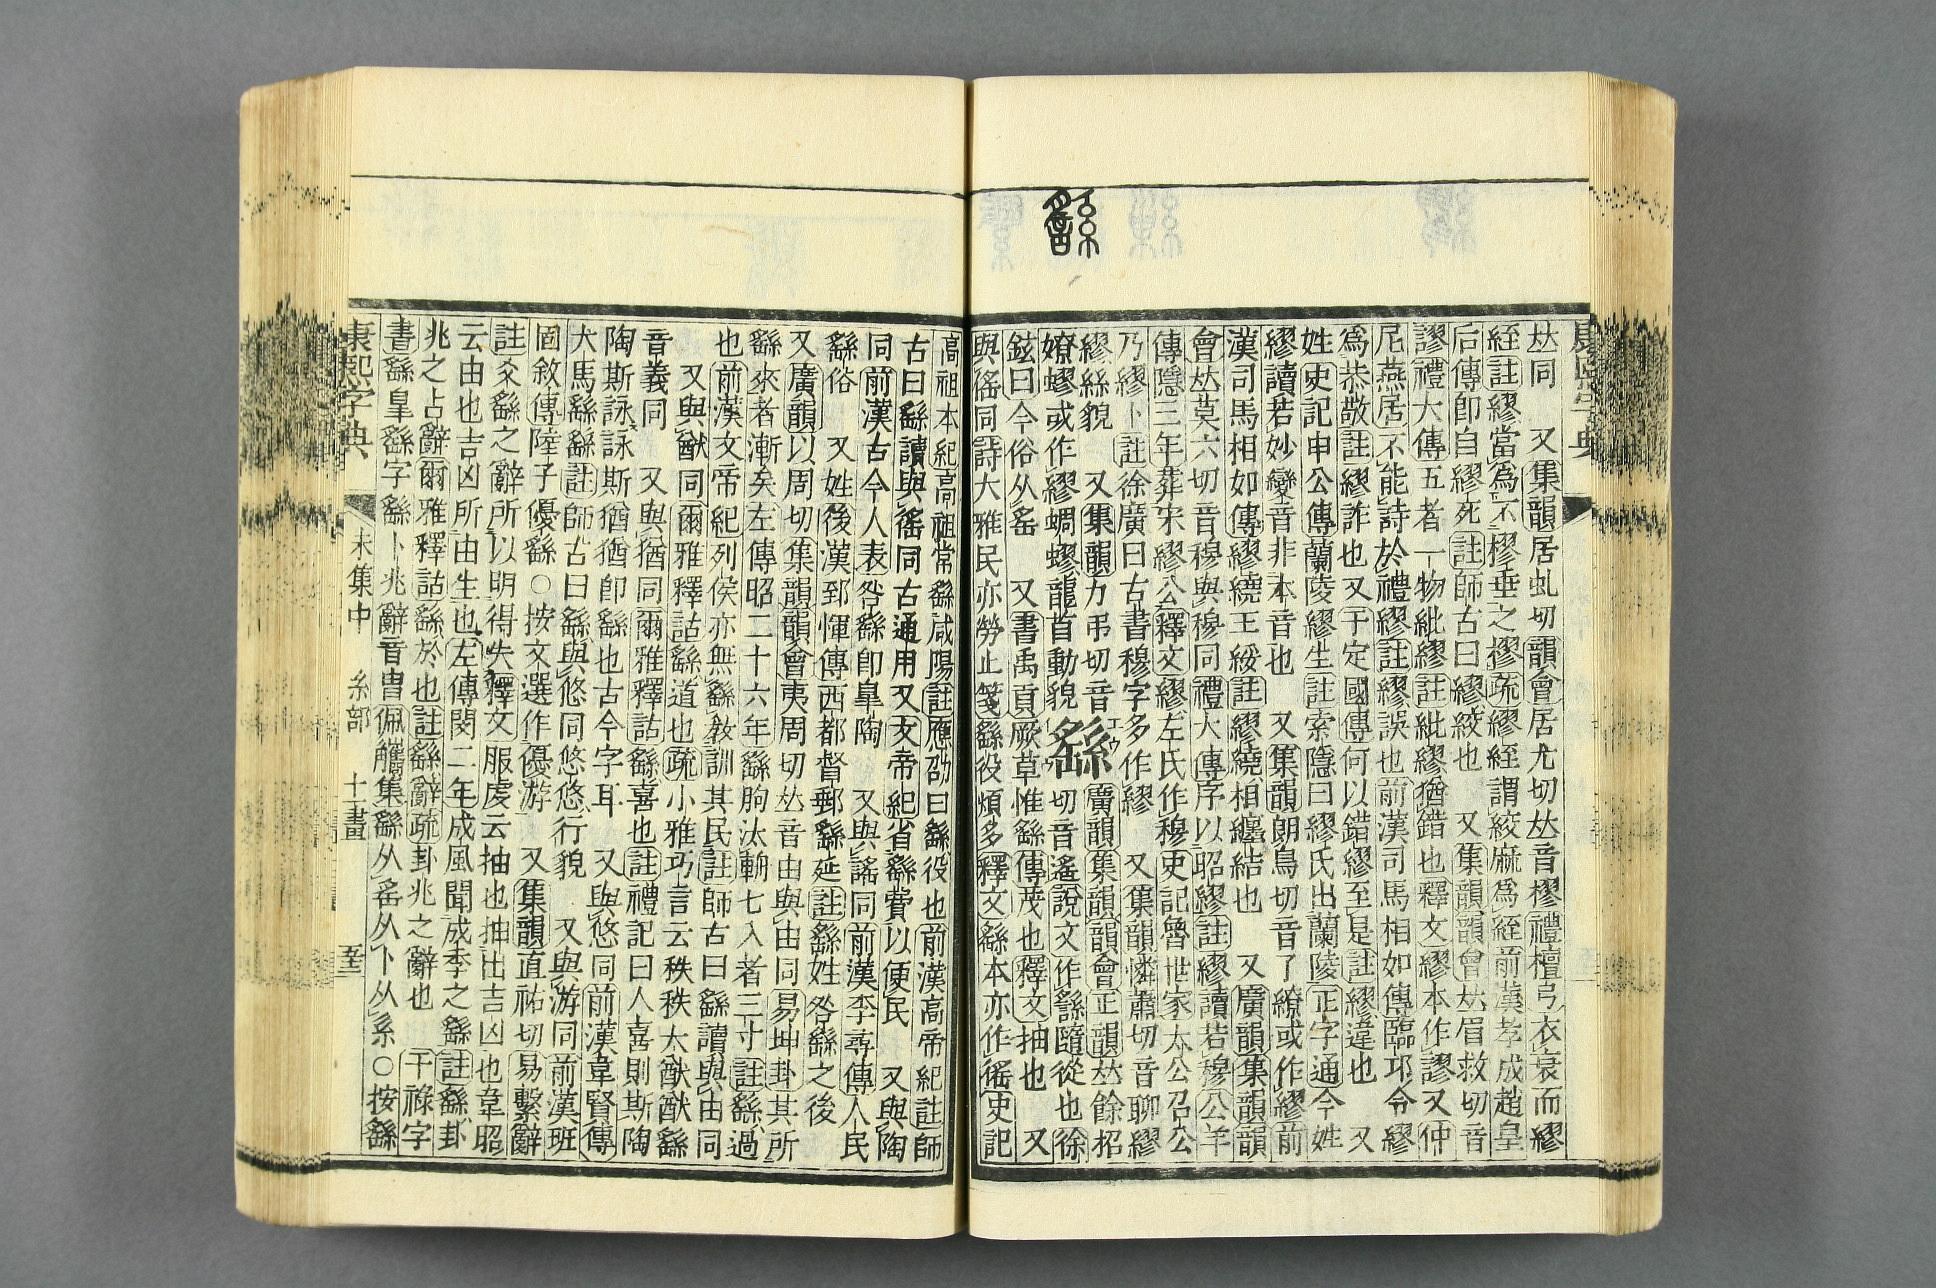 𠀤同　又集韻居虬切韻會居尤切𠀤音樛禮檀弓衣衰而繆
絰註繆當爲不樛垂之樛疏繆絰謂絞麻爲絰前漢孝成趙皇
后傳卽自繆死註師古曰繆絞也　又集韻韻會𠀤眉救切音
謬禮大傳五者一物紕繆註紕繆猶錯也釋文繆本作謬又仲
尼燕居不能詩於禮繆註繆誤也前漢司馬相如傳臨邛令繆
爲恭敬註繆詐也又于定國傳何以錯繆至是註繆違也　又
姓史記申公傳蘭陵繆生註索隱曰繆氏出蘭陵正字通今姓
繆讀若妙變音非本音也　又集韻朗鳥切音了繚或作繆前
漢司馬相如傳繆繞王綏註繆繞相纏結也　又廣韻集韻韻
會𠀤莫六切音穆與穆同禮大傳序以昭繆註繆讀若穆公羊
傳隱三年葬宋繆公釋文繆左氏作穆史記魯世家太公召公
乃繆卜註徐廣曰古書穆字多作繆　又集韻憐蕭切音聊繆
繆絲貌　又集韻力弔切音
嫽蟉或作繆蜩蟉龍首動貌
繇
エウ
廣韻集韻韻會正韻𠀤餘招
切音遙說文作繇隨從也徐
鉉曰今俗从䍃　又書禹貢厥草惟繇傳茂也釋文抽也　又
與徭同詩大雅民亦勞止箋繇役煩多釋文繇本亦作徭史記
高祖本紀高祖常繇咸陽註應劭曰繇役也前漢高帝紀註師
古曰繇讀與徭同古通用又文帝紀省繇費以便民　又與陶
同前漢古今人表咎繇卽皐陶　又與謠同前漢李尋傳人民
繇俗　又姓後漢郅惲傳西都督郵繇延註繇姓咎繇之後
又廣韻以周切集韻韻會夷周切𠀤音由與由同易坤卦其所
繇來者漸矣左傳昭二十六年繇朐汰輈七入者三寸註繇過
也前漢文帝紀列侯亦無繇敎訓其民註師古曰繇讀與由同
又與猷同爾雅釋詁繇道也疏小雅巧言云秩秩大猷猷繇
音義同　又與猶同爾雅釋詁繇喜也註禮記曰人喜則斯陶
陶斯詠詠斯猶猶卽繇也古今字耳　又與悠同前漢韋賢傳
犬馬繇繇註師古曰繇與悠同悠悠行貌　又與游同前漢班
固敘傳陸子優繇○按文選作優游　又集韻直祐切易繫辭
註爻繇之辭所以明得失釋文服虔云抽也抽出吉凶也韋昭
云由也吉凶所由生也左傳閔二年成風聞成季之繇註繇卦
兆之占辭爾雅釋詁繇於也註繇辭疏卦兆之辭也　干祿字
書繇皐繇字繇卜兆辭音胄佩觿集繇从䍃从卜从系○按繇
康熙字典
未集中　糸部　十一畫